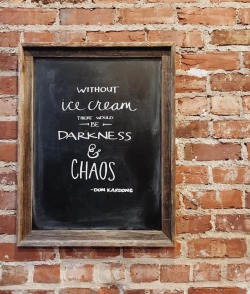 WITHOUT
ice cream
THERE WOULD
BE
DARKNESS
&
CHAOS
-DON KARDONG